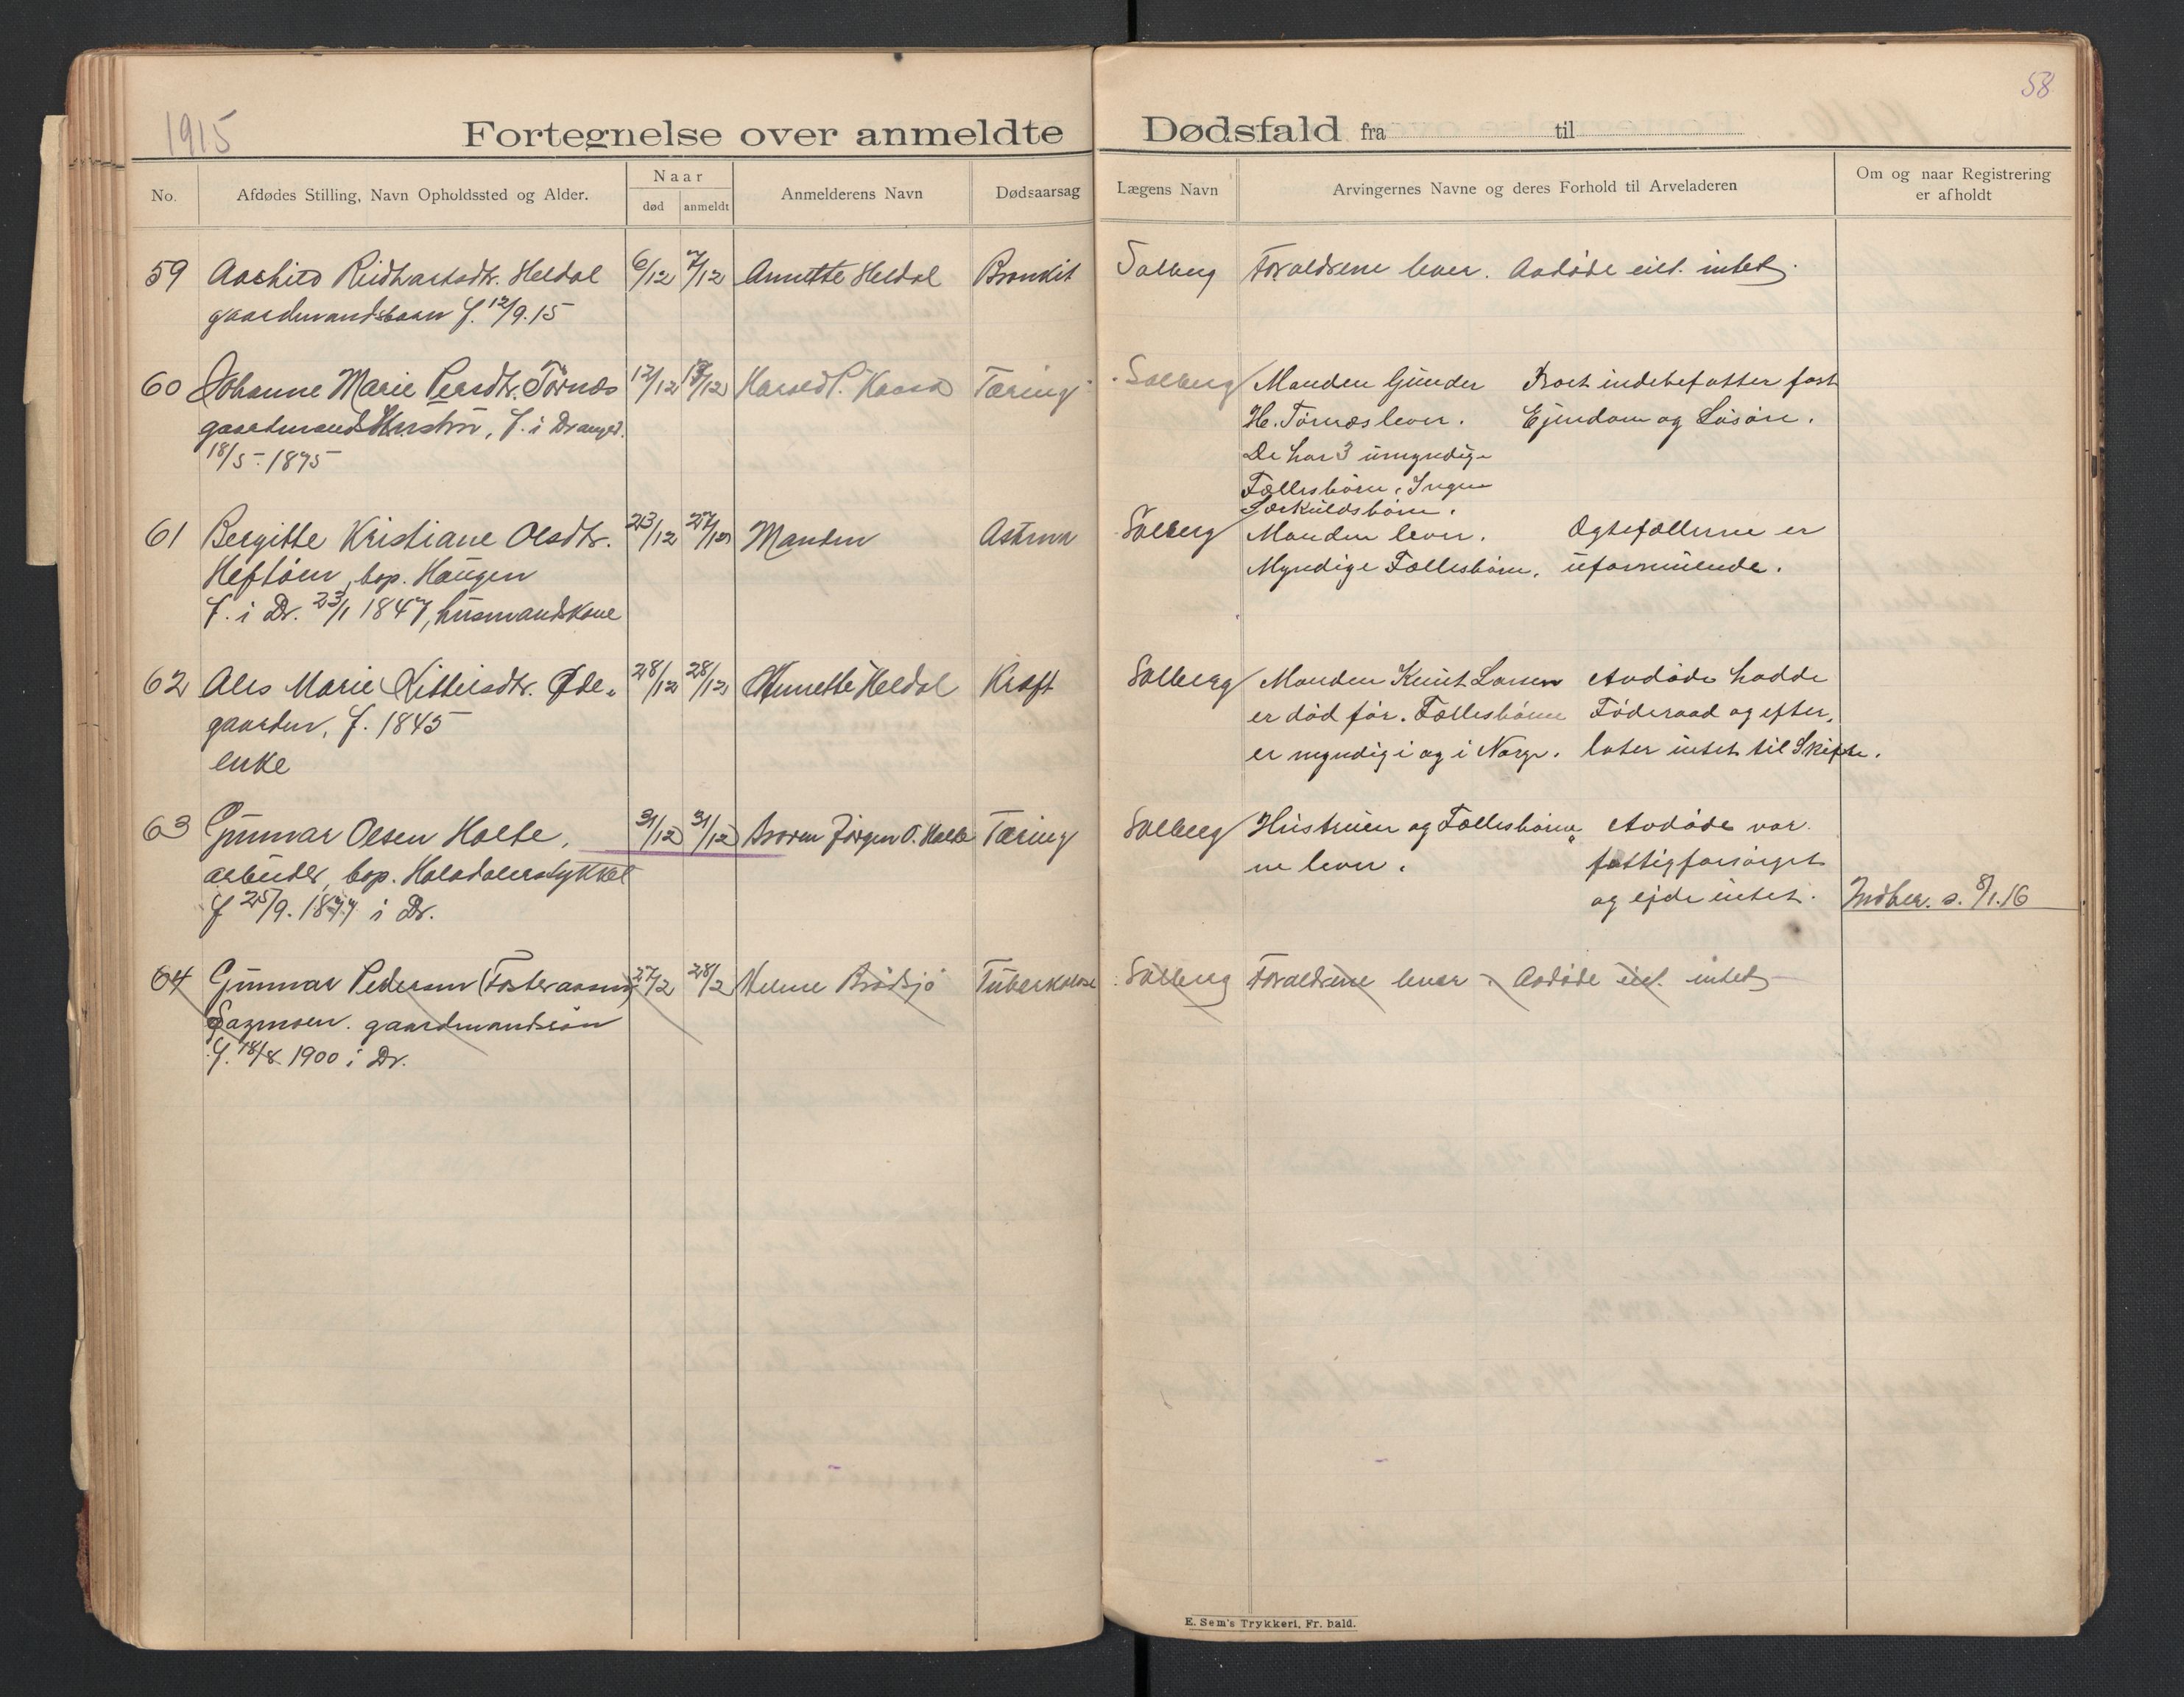 1915
58
Fortegnelse over anmeldte Dødsfald fra til
No.
Afdødes Stilling, Navn Opholdssted og Alder.
Naar
død
anmeldt
Anmelderens Navn
Dødsaarsag
Lægens Navn
Arvingernes Navne og deres Forhold til Arveladeren
Om og naar Registrering
er afholdt
59 Aashild Reidharsdtr. Heldal 6/12 7/12 Annette Heldal Bronkit Solberg Forældrene lever. Avdøde eiet intet.
gaardmandsbarn f. 12/9.15
60 Johanne Marie Persdtr. Tørnæs 12/12 13/12 Harald P. Kaasa Tæring Solberg Manden Gunder Boet indebefatter fast
gaardmands Hustru, f. i Drangd. H. Tørnæs lever. Ejendom og Løsøre.
18/5-1875 De har 3 umyndige
Fællesbørn. Ingen
Særkuldsbørn.
61 Bergitte Kristiane Olsdtr. 23/12 27/12 Manden Astma Solberg Manden lever. Ægtefællerne er
Heftøen, bop. Haugen Myndige Fællesbørn. uformuende.
f. i Dr. 23/1 1847, husmandskone
62 Ales Marie Kittilsdtr. Øde- 28/12 28/12 Annette Heldal Kræft Solberg Manden Knut Larsen Avdøde hadde
gaarden, f. 1845 er død før. Fællesbørn Føderaad og efter-
enke er myndige og i Norge. later intet til Skifte.
63 Gunnar Olsen Holte, 31/12 31/12 Broren Jørgen O. Holte Tæring Solberg Hustruen og Fællesbørne- Avdøde var
arbeider, bop. Holsdalerstykket ne lever. fattigforsørget
f 25/9. 1877 i Dr. og ejde intet. Indber. s. 8/1.16
64 Gunnar Pedersen (Fosteraasen) 27/2 28/2 Helene Brødsjø Tuberkulose Solberg Forældrene lever. Avdøde eiet intet
gaardmandssøn
f. 18/8 1900 i Dr.
E. Sem's Trykkeri, Fr. hald.